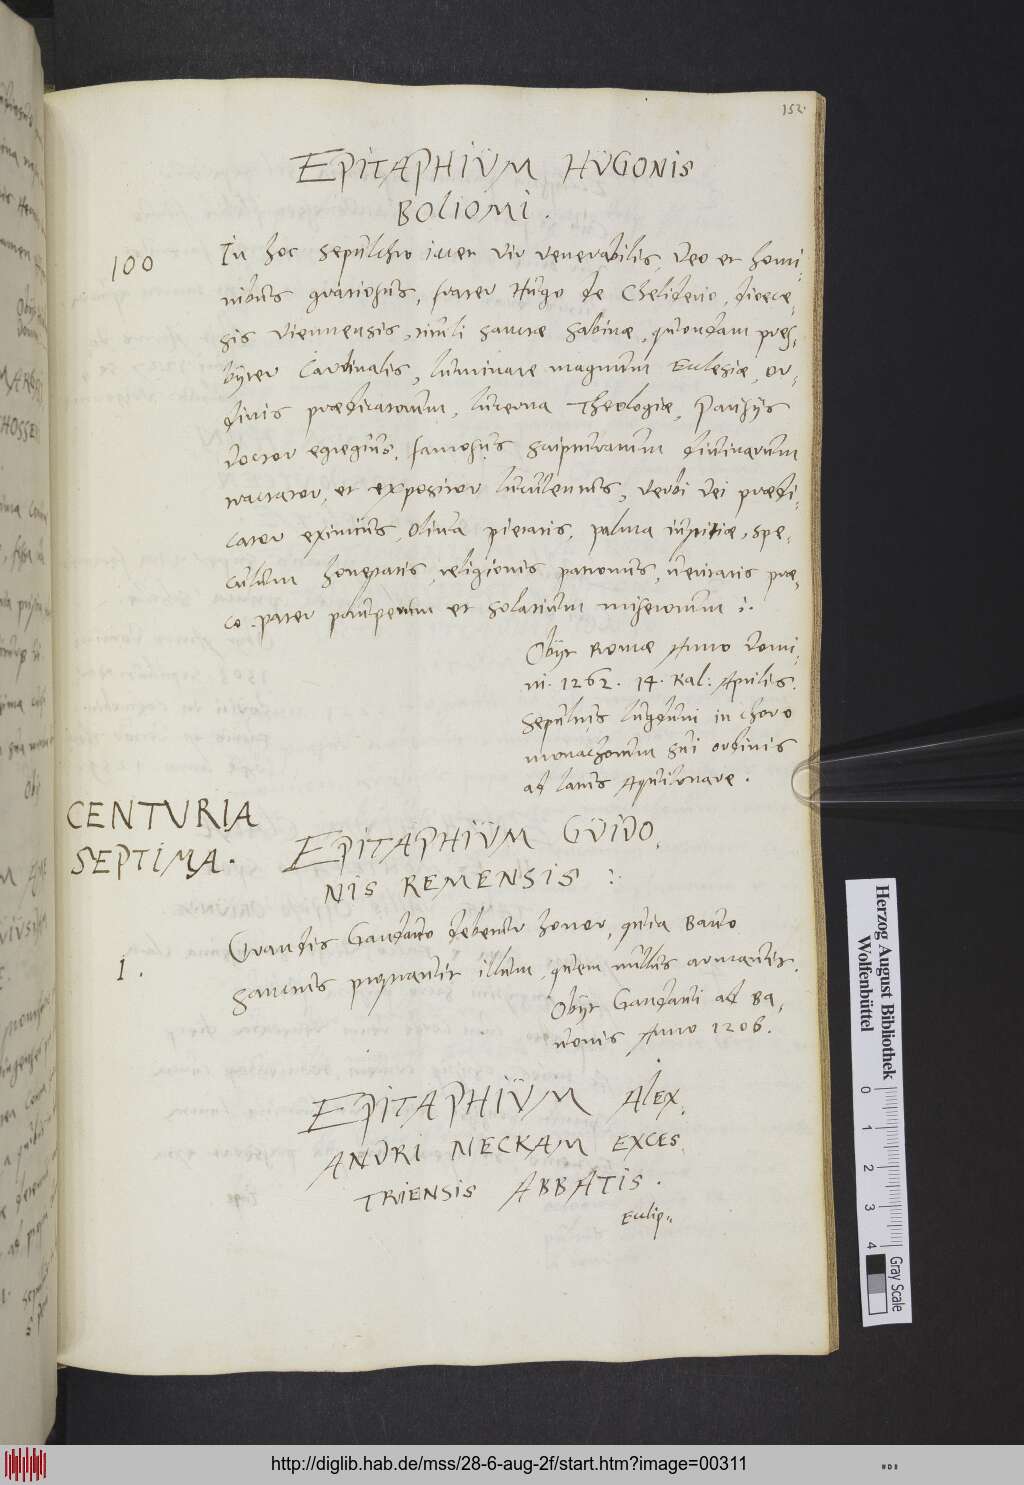 152.
EPITAPHIUM HUGONIS
BOLIOMI.
100
In hoc sepulchro iacet vir venerabilis, Deo et homi-
nibus gratiosus, frater Hugo de Cheliderio, dioece-
sis Viennensis, tituli sanctæ Sabinæ, quondam pres-
byter Cardinalis, luminare magnum Ecclesiæ, or-
dinis prædicatorum, lucerna Theologiæ, Parisijs
doctor egregius, famosus scripturarum divinarum
tractator, et expositor luculentus, verbi Dei prædi-
cator eximius, oliva pietatis, palma iustitiæ, spe-
culum honestatis, religionis patronus, veritatis præ-
co. pater pauperum et solatium miserorum :.
Obijt Romæ Anno Domi-
ni. 1262. 14. Kal: Aprilis.
Sepultus Lugduni in choro
monachorum sui ordinis
ad latus Aquilonare.
CENTURIA
SEPTIMA.
EPITAPHIUM GUIDO,
NIS REMENSIS :
1.
Grandis Gandavo debetur honor, quia Bavo
Sanctus pugnavit illum, quem nullus amavit.
Obijt Gandavi ad Ba,
vonis Anno 1206.
EPITAPHIUM ALEX,
ANDRI NECKAM EXCES,
TRIENSIS ABBATIS.
Eclip-
Herzog August Bibliothek
Wolfenbüttel
0 1 2 3 4
Gray Scale
http://diglib.hab.de/mss/28-6-aug-2f/start.htm?image=00311